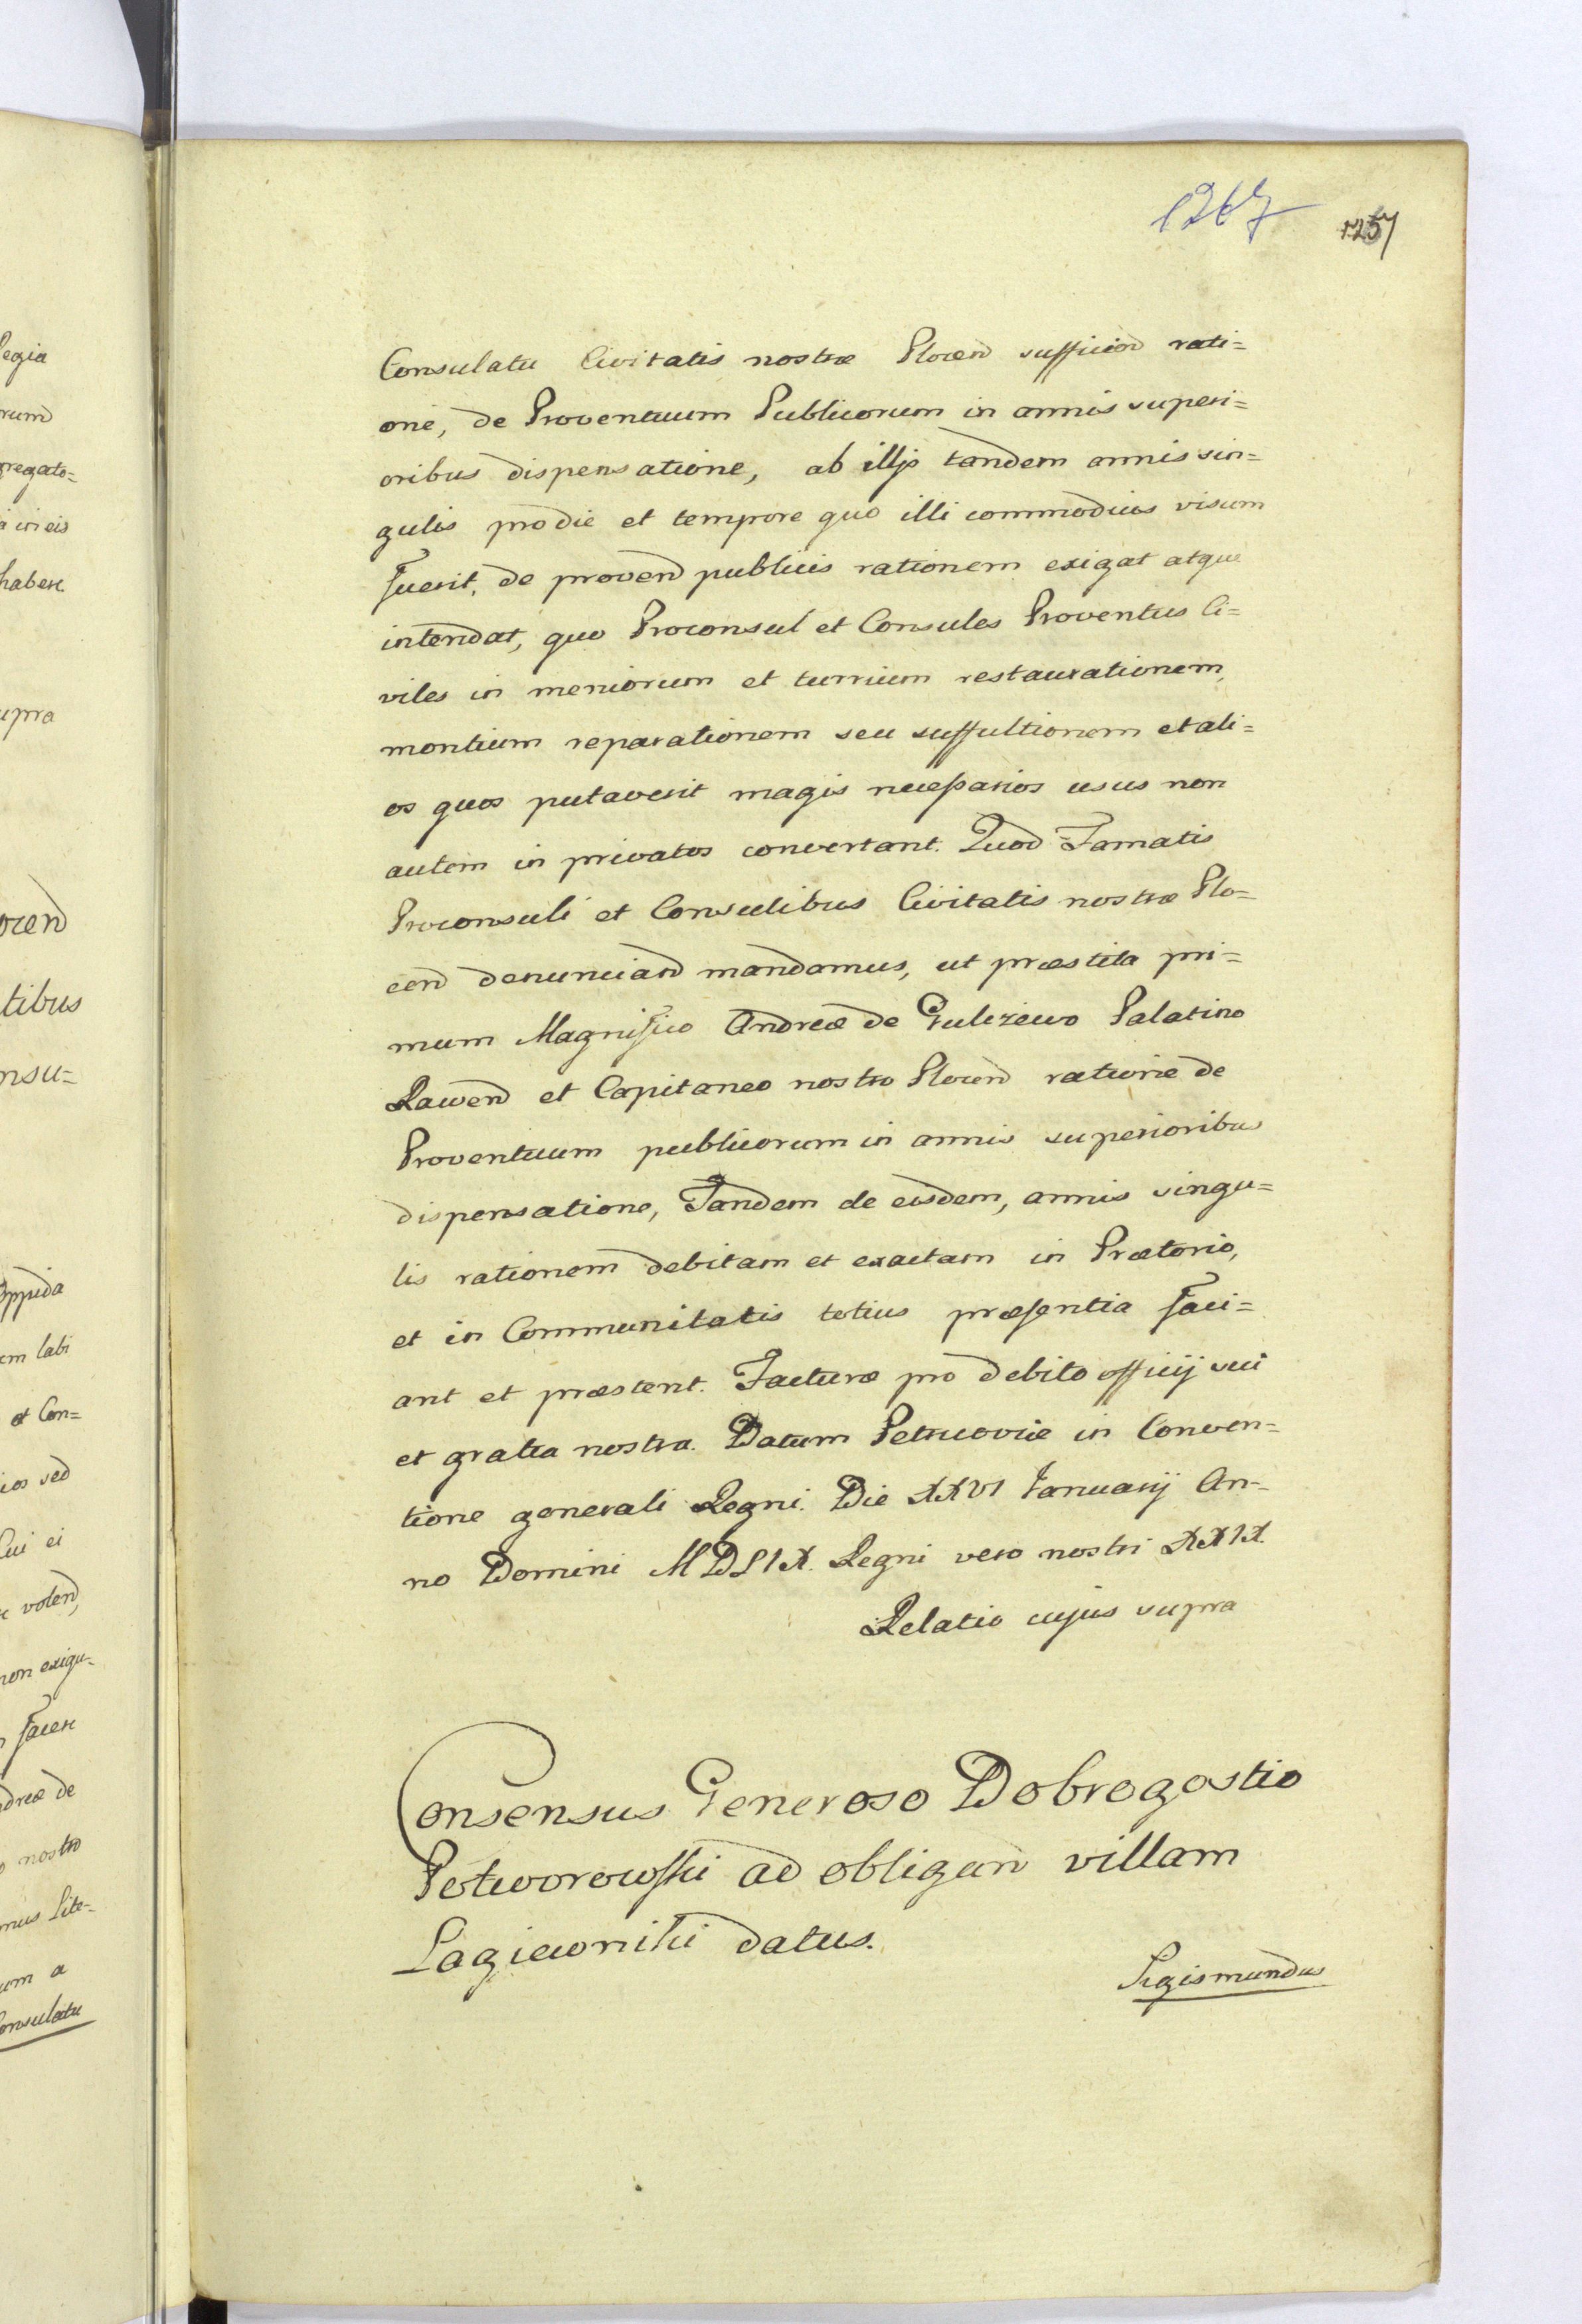 1267 1257
Consulatu Civitatis nostræ Plocen̄ sufficien̄ rati=
one, de Proventuum Publicorum in annis superi=
oribus dispensatione, ab illis tandem annis sin=
gulis pro die et tempore quo illi commodius visum
fuerit, de proven̄ publicis rationem exigat atque
intendat, quo Proconsul et Consules Proventus Ci=
viles in meniorum et turrium restaurationem,
montium reparationem seu suffultionem et ali=
os quos putaverit magis necessarios usus non
autem in privatos convertant. Quod Famatis
Proconsuli et Consulibus Civitatis nostræ Plo=
cen̄ denuncian̄ mandamus, ut præstita pri=
mum Magnifico Andreæ de Gulczewo Palatino
Rawen̄ et Capitaneo nostro Plocen̄ ratione de
Proventuum publicorum in annis superioribus
dispensatione, Tandem de eisdem, annis singu=
lis rationem debitam et exactam in Prætorio,
et in Communitatis totius præsentia faci=
ant et præstent. Facturæ pro debito officij sui
et gratia nostra. Datum Petricoviæ in Conven=
tione generali Regni. Die XXVI Januarij An-
no Domini MDLIX. Regni vero nostri XXIX.
Relatio cujus supra
Consensus Generoso Dobrogostio
Potworowski ad obligan̄ villam
Lagiewniki datus.
Sigismundus
egia
rum
gregato=
a in eis
habere
upra
ocen̄
tibus
nsu=
Oppida
em labi
et Con=
ios sed
Cui ei
volen̄,
non exigu-
facere
dreæ de
nostro
mus Lite-
um a
onsulatu